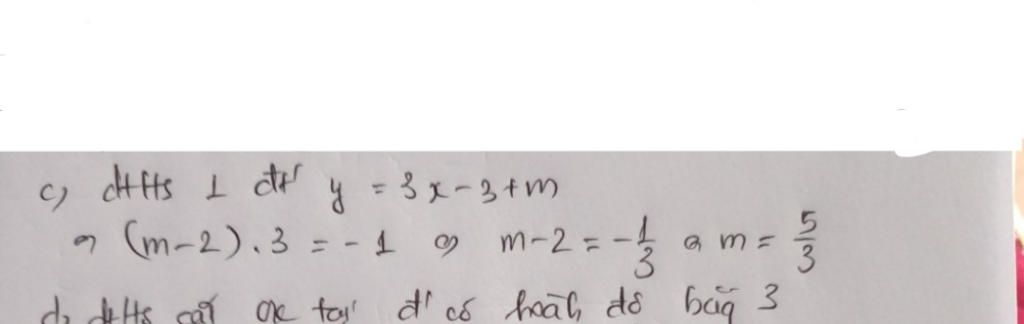 c) đtHs ⊥ đt y = 3x - 3 + m
⇔ (m-2).3 = -1 ⇔ m-2 = -1/3 ⇔ m = 5/3
d) đtHs cắt ox tại đ' có hoành độ bằng 3